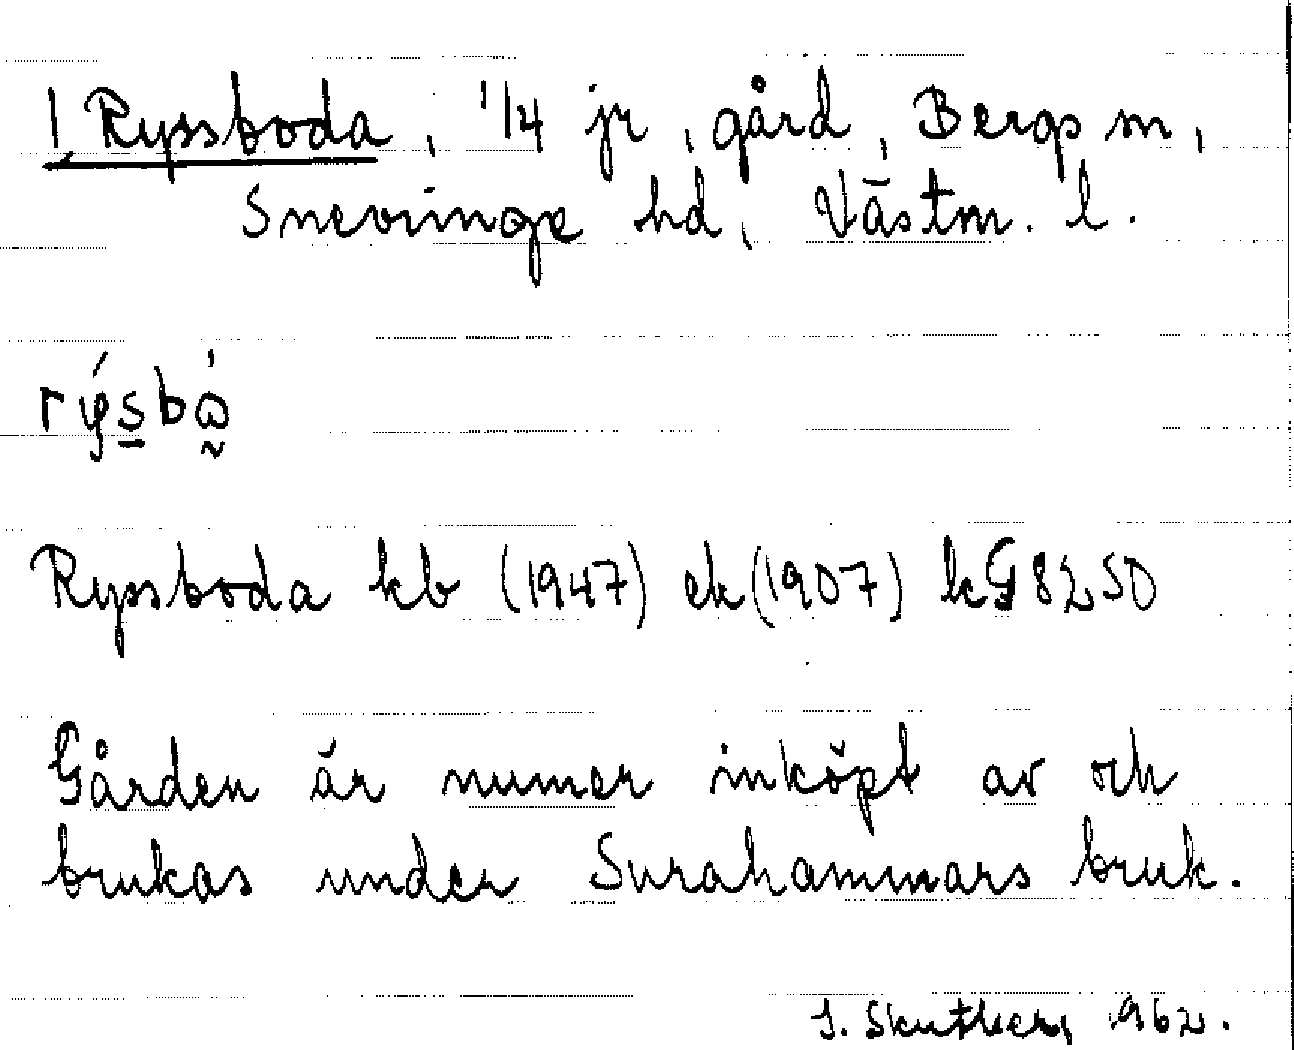 1 Ryssboda, 1/4 jr, gård, Bergs sn,
Snevringe hd, Västm. l.
rýsbå̀
Ryssboda kb (1947) ek (1907) kG 8250
Gården är numer inköpt av och
brukas under Surahammars bruk.
1962.